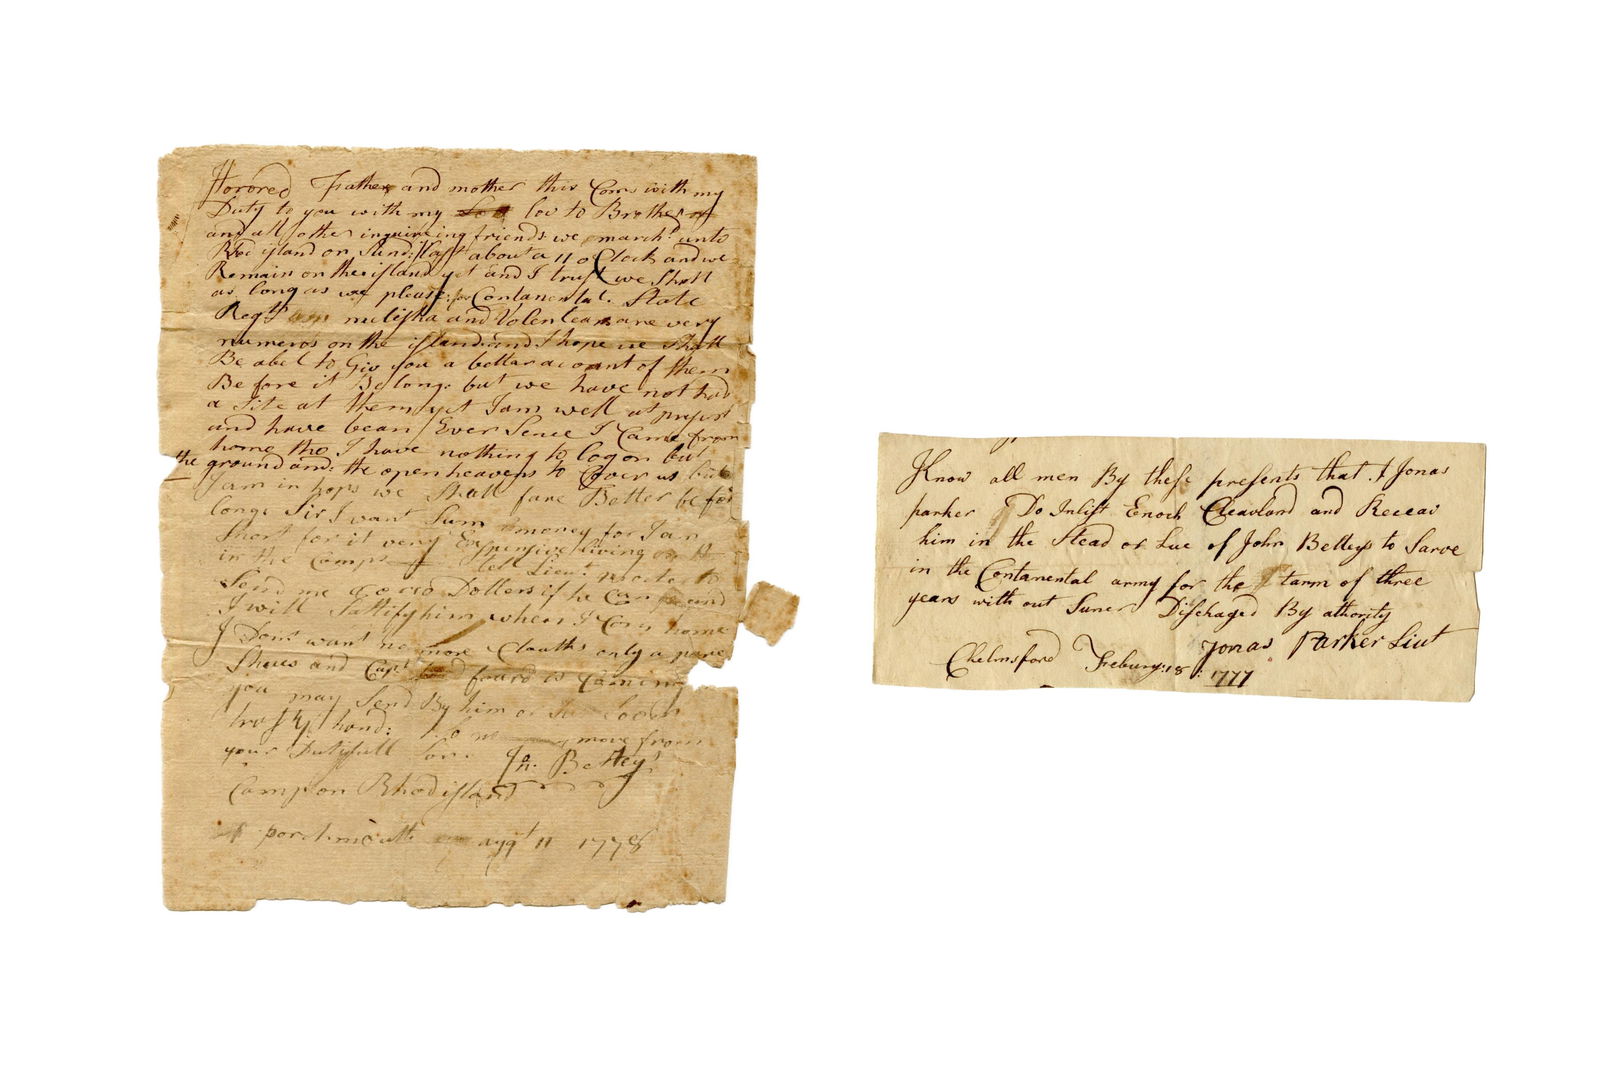 Honored Father and mother this Coms with my
Duty to you with my lov to Brother
and all other inquireing friends we marcht unto
Rhod island on Sund: last about a 11 o Clock and we
Remain on the island yet and I trust we Shall
as long as we please: for Contanental. State
Regts militsha and Volentears are very
numeros on the island: and I hope we Shall
Be abel to Giv you a bettar acount of them
Before it Be long: but we have not had
a Site at them yet I am well at present
and have bean Ever Sence I Came from
home tho I have nothing to log on but
the ground and: the open heavens to Cover us but
I am in hops we Shall fare Better be for
long: Sir I want Sum money for I am
Short for it very Expensive living
in the Camps tell Lieut
Send me Dollers if he Can and
I will Sattisfy him when I Com home
I Dont want no more Cloaths only a pare
Shues and Capt foard is Coming
you may Send By him or
trosty hand: So no more from
your Dutyfull Son. Jn. Betteys
Camp on Rhod island
portsmouth augt 11 1778
Know all men By these presents that I Jonas
parker Do Inlist Enoch Cleavland and Receav
him in the Stead or Lue of John Betteys to Sarve
in the Contanental army for the tarm of three
years with out Suner Dischaged By athority
Jonas Parker Liut
Chelmsford Frebury: 18: 1777